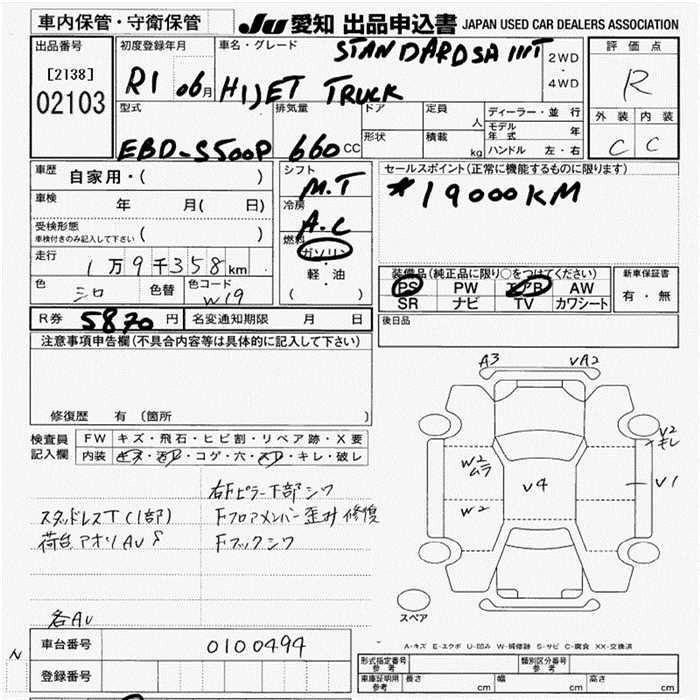 車内保管・守衛保管
JU 愛知 出品申込書 JAPAN USED CAR DEALERS ASSOCIATION
出品番号
[2138]
02103
初度登録年月
R1 06月
車名・グレード
STANDARD SA III T
HIJET TRUCK
2WD
・
4WD
評価点
R
外装 内装
C C
型式
EBD-S500P
排気量
660 CC
ドア
形状
定員
人
積載
kg
ディーラー・並行
モデル年式 年
ハンドル 左・右
車歴
自家用・( )
車検
年 月( 日)
受検形態
車検付きのみ記入して下さい ( )
走行
1万9千358km
色
シロ
色替
色コード
W19
シフト
M.T
冷房
A.C
燃料
ガソリン
・
軽油
( )
セールスポイント(正常に機能するものに限ります)
*19000KM
装備品(純正品に限り○をつけてください)
PS PW エアB AW
SR ナビ TV カワシート
新車保証書
有・無
後日品
R券 5870円 名変通知期限 月 日
注意事項申告欄(不具合内容等は具体的に記入して下さい)
修復歴 有 (箇所 )
検査員
記入欄
FW キズ・飛石・ヒビ割・リペア跡・X要
内装 キズ・汚レ・コゲ・穴・スレ・キレ・破レ
右Fピラー下部シワ
スタッドレスT(1部)
Fフロアメンバー歪み修復
荷台アオリAU S
Fフックシワ
各AU
A3 VA2
V2
キレ
W2
ムラ
V4
V1
W2
スペア
A-キズ E-エクボ U-凹み W-補修跡 S-サビ C-腐食 XX-交換済
N
車台番号 0100494
登録番号
形式指定番号
参考
類別区分番号
参考
車庫証明用
参考
長さ cm 幅 cm 高さ cm